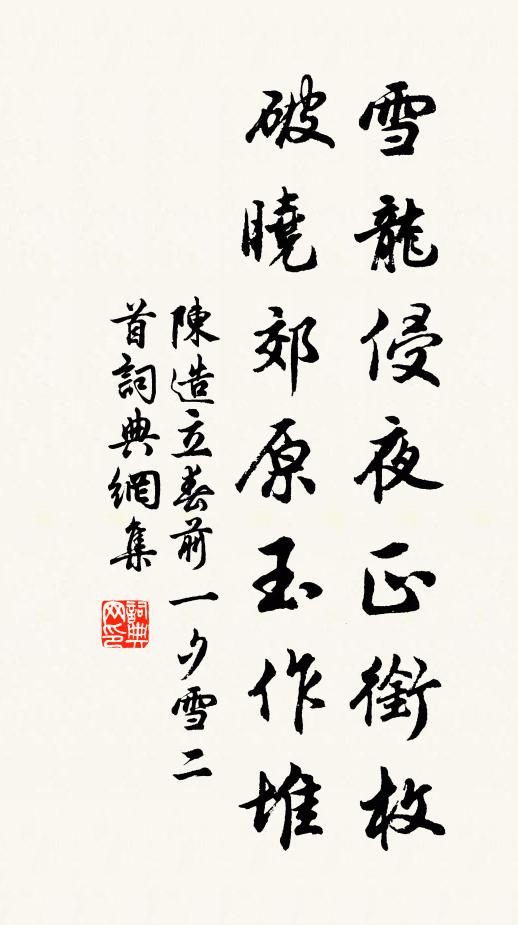 雪龍侵夜正銜枚
破曉郊原玉作堆
陳造立春前一夕雪二
首詞典網集
詞典网印